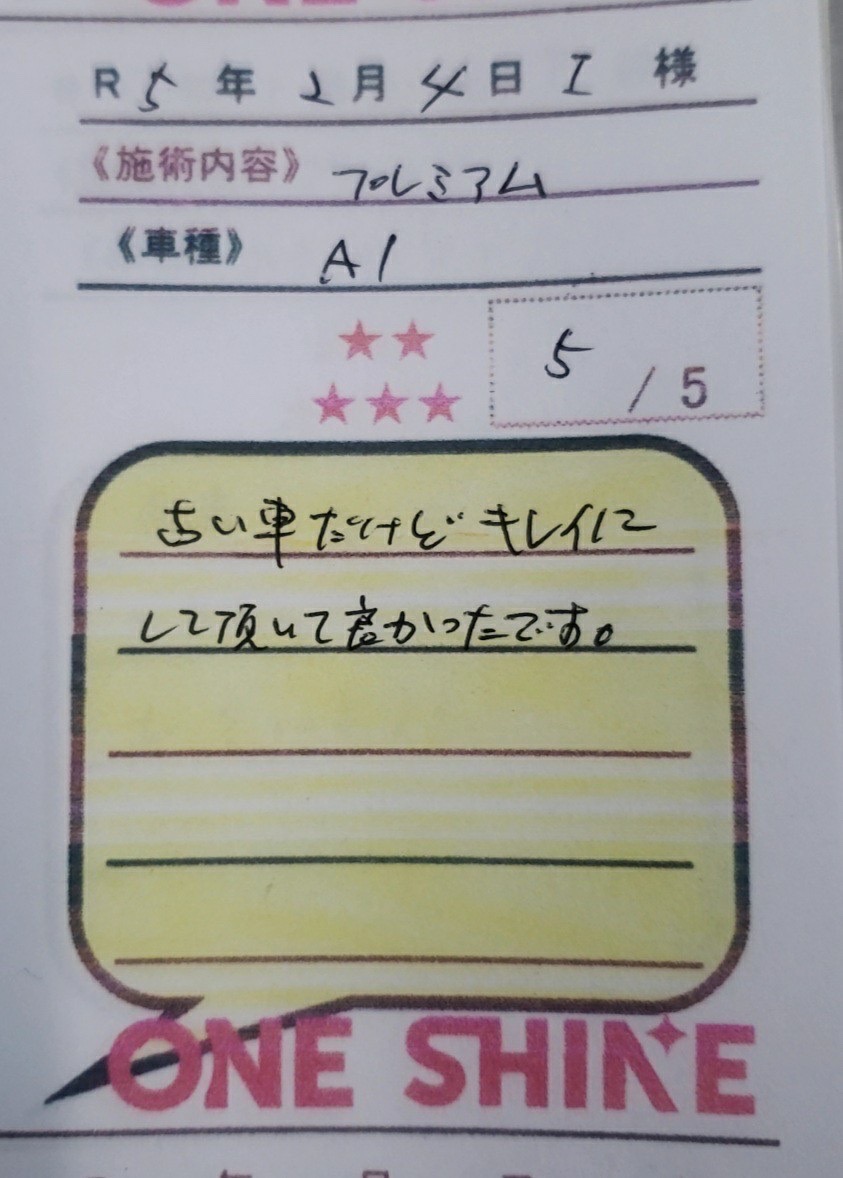 R5年2月4日 I 様
《施術内容》 プレミアム
《車種》 A1
★★
★★★
5/5
古い車だけどキレイに
して頂いて良かったです。
ONE SHINE